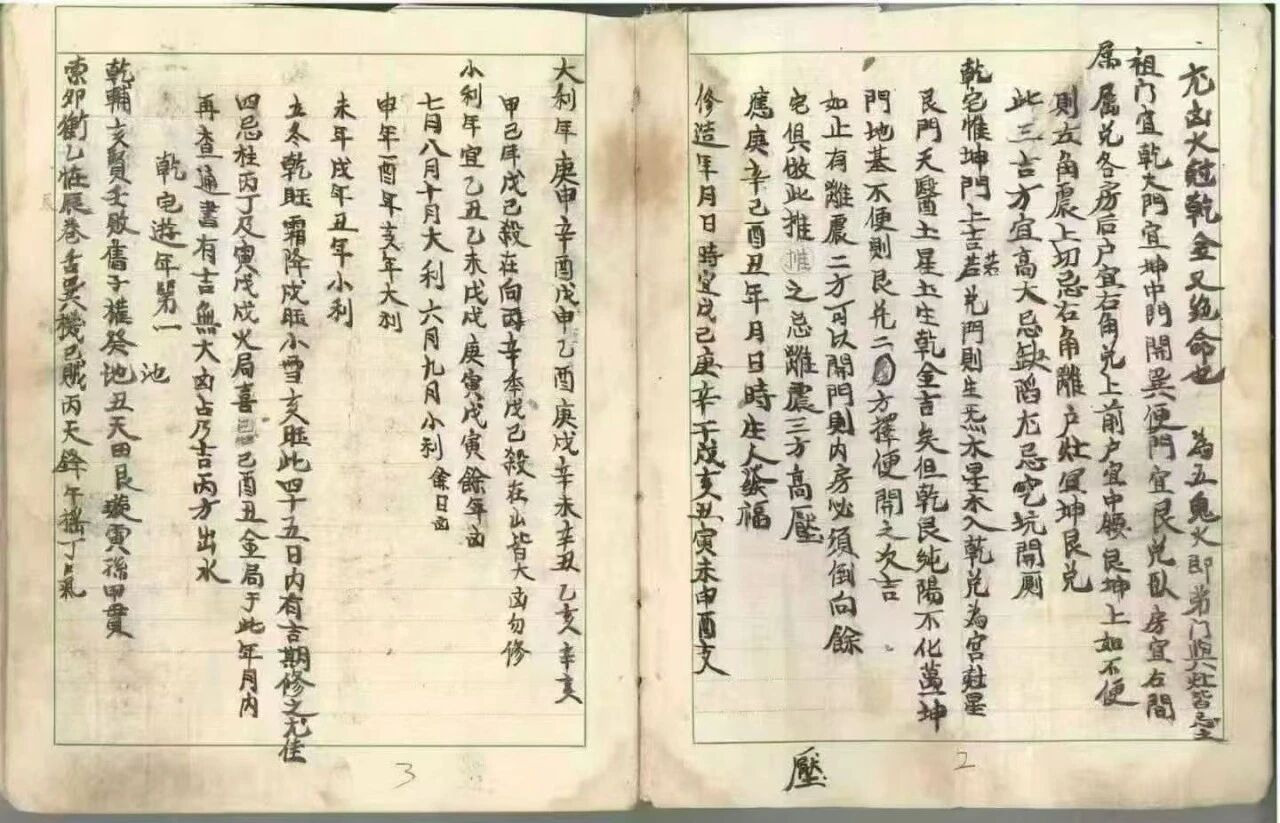 尤凶火尅乾金又絶命也 為五鬼火即弟门與灶皆忌之
祖门宜乾大門宜坤中門開巽便門宜艮兑臥房宜右間
屬 屬兑各房后户宜右角兑上前户宜中腰艮坤上如不便
則左角震上切忌右角離户灶宜坤艮兑
此三吉方宜高大忌缺陷尤忌吃坑開厠
乾宅惟坤門上吉若兑門則生炁木星木入乾兑為宫尅星
若
艮門天醫土星土生乾金吉矣但乾艮純陽不化萬一坤
門地基不便則艮兑二方擇便開之次吉
如止有離震二方可以開門則内房必須倒向餘
宅俱倣此推推之忌離震三方高壓
應庚辛己酉丑年月日時生人發福
修造年月日時宜戊己庚辛子戌亥丑寅未申酉支
壓
2
大利年庚申辛酉戊申乙酉庚戌辛未辛丑乙亥辛亥
甲己年戊己殺在向丙辛季戊己殺在山皆大凶勿修
小利年宜乙丑乙未戊戌庚寅戊寅餘年凶
七月八月十月大利六月九月小利 餘日凶
申年酉年亥年大利
未年戌年丑年小利
立冬乾旺霜降戌旺小雪亥旺此四十五日内有吉期修之尤佳
四忌柱丙丁及寅戊戌火局喜己酉丑金局于此年月内
再查通書有吉無大凶占乃吉丙方出水
乾宅遊年第一
池
乾輔亥賢壬敗舊子權癸地丑天田艮璇寅孫甲貫
索卯衝乙恠辰巷舌巽機巳賊丙天鋒午摇丁上氣
3